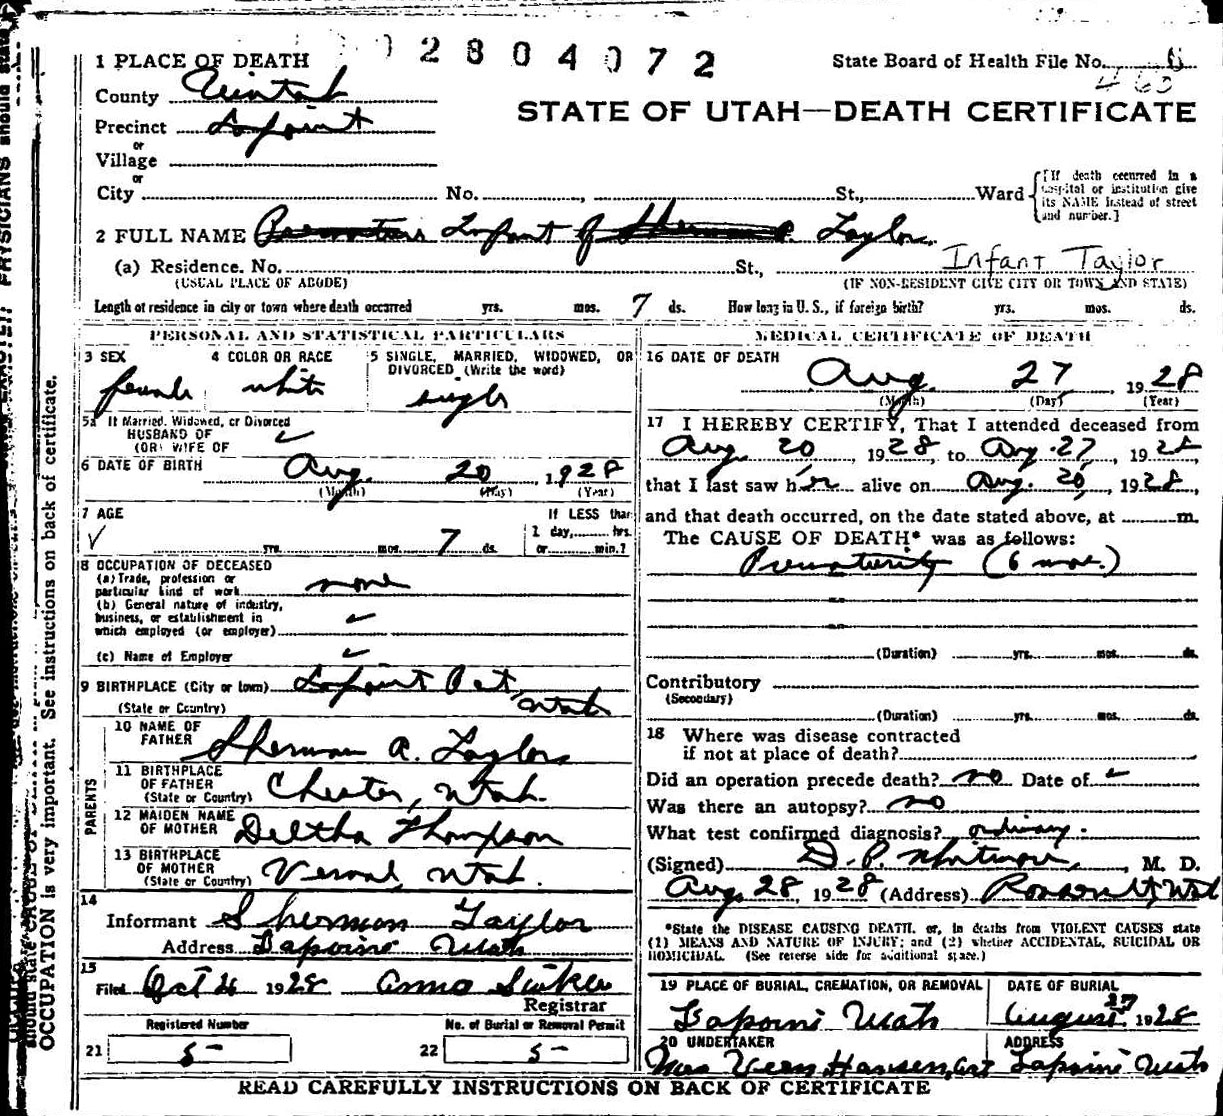 2804072
1 PLACE OF DEATH
State Board of Health File No.
County Uintah
463
STATE OF UTAH—DEATH CERTIFICATE
Precinct Lapoint
or
Village
or
City No. , St., Ward
[If death occurred in a hospital or institution give its NAME instead of street and number.]
2 FULL NAME Premature Infant of Sherman P. Taylor.
Infant Taylor
(a) Residence. No. St.,
(USUAL PLACE OF ABODE) (IF NON-RESIDENT GIVE CITY OR TOWN AND STATE)
Length of residence in city or town where death occurred yrs. mos. 7 ds. How long in U. S., if foreign birth? yrs. mos. ds.
PERSONAL AND STATISTICAL PARTICULARS
3 SEX 4 COLOR OR RACE 5 SINGLE, MARRIED, WIDOWED, OR DIVORCED (Write the word)
female white single
5a If Married, Widowed, or Divorced
HUSBAND OF
(OR) WIFE OF
6 DATE OF BIRTH Aug. 20 1928
(Month) (Day) (Year)
7 AGE If LESS than
1 day, hrs.
yrs. mos. 7 ds. or min.?
8 OCCUPATION OF DECEASED
(a) Trade, profession or
particular kind of work none
(b) General nature of industry,
business, or establishment in
which employed (or employer)
(c) Name of Employer
9 BIRTHPLACE (City or town) Lapoint Pct,
(State or Country) Utah
PARENTS
10 NAME OF
FATHER Sherman A. Taylor
11 BIRTHPLACE
OF FATHER
(State or Country) Chester, Utah.
12 MAIDEN NAME
OF MOTHER Deltha Thompson
13 BIRTHPLACE
OF MOTHER
(State or Country) Vernal, Utah.
14
Informant Sherman Taylor
Address Lapoint Utah
15
Filed Oct 4 1928
Registrar
Registered Number No. of Burial or Removal Permit
21 5- 22 5-
MEDICAL CERTIFICATE OF DEATH
16 DATE OF DEATH
Aug. 27 1928
(Month) (Day) (Year)
17 I HEREBY CERTIFY, That I attended deceased from
Aug. 20, 1928, to Aug. 27, 1928
that I last saw her alive on Aug. 20, 1928,
and that death occurred, on the date stated above, at m.
The CAUSE OF DEATH* was as follows:
Prematurity (6 mos.)
(Duration) yrs. mos. ds.
Contributory
(Secondary)
(Duration) yrs. mos. ds.
18 Where was disease contracted
if not at place of death?
Did an operation precede death? no Date of
Was there an autopsy? no
What test confirmed diagnosis? ordinary.
(Signed) D. P. Whitmore, M. D.
Aug. 28, 1928 (Address) Roosevelt, Utah
*State the DISEASE CAUSING DEATH, or, in deaths from VIOLENT CAUSES state
(1) MEANS AND NATURE OF INJURY; and (2) whether ACCIDENTAL, SUICIDAL OR
HOMICIDAL. (See reverse side for additional space.)
19 PLACE OF BURIAL, CREMATION, OR REMOVAL DATE OF BURIAL
Lapoint Utah August 27 1928
20 UNDERTAKER ADDRESS
Mrs Vern Hansen, Lapoint Utah
READ CAREFULLY INSTRUCTIONS ON BACK OF CERTIFICATE
OCCUPATION is very important. See instructions on back of certificate.
PHYSICIANS should state